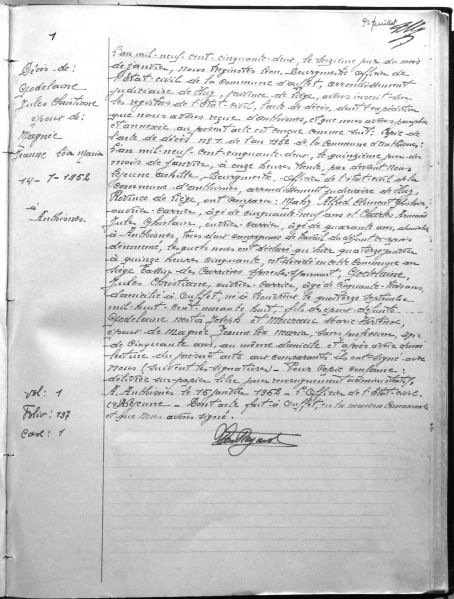 1
Décès de:
Godelaine
Jules Christiane
époux de:
Magnée
Jeanne Léa Maria
14-1-1952
à
Anthisnes.
vol: 1
Folio: 137
Case: 1
L'an mil-neuf-cent-cinquante-deux, le seizième jour du mois
de janvier, nous Léon, Bourgmestre officier de
l'Etat-civil de la Commune d'Ouffet, arrondissement
judiciaire de Huy, province de Liège, avons inscrit sur
les registres de l'Etat-civil, l'acte de décès, dont l'expédition
que nous avons reçue d'Anthisnes, et que nous avons paraphée
et annexée au présent acte est conçue comme suit: Copie de
l'acte de décès n° 1. de l'an 1952 de la commune d'Anthisnes:
L'an mil-neuf-cent-cinquante-deux, le quinzième jour du
mois de janvier, à onze heures trente, par devant Nous
Lejeune Achille, Bourgmestre, officier de l'état-civil de la
Commune d'Anthisnes, arrondissement judiciaire de Huy,
Province de Liège, ont comparu: Alfred Clément Ghislain,
ouvrier-carrier, âgé de cinquante-neuf ans et Armand
Jules Ghislain, ouvrier-carrier, âgé de quarante ans, domiciliés
à Anthisnes, tous deux compagnons de travail du défunt ci-après
dénommé, lesquels nous ont déclaré qu'hier quatorze janvier
à quinze heures cinquante, est décédé en cette Commune au
siège des Carrières Godelaine,
Jules Christiane, ouvrier-carrier, âgé de cinquante-trois ans,
domicilié à Ouffet, né à le quatorze septembre
mil-huit-cent-nonante-huit, fils des époux défunts
Godelaine Joseph et Marie Hortense,
époux de Magnée Jeanne Léa Maria, sans profession, âgée
de cinquante ans, au même domicile et après avoir donné
lecture du présent acte aux comparants ils ont signé avec
nous (suivent les signatures) - Pour Copie conforme:
délivrée sur papier libre pour renseignement administratif.
A Anthisnes le 15 janvier 1952 - L'Officier de l'Etat-civil
Lejeune - Dont acte fait à Ouffet, en la maison Communale
et que nous avons signé.